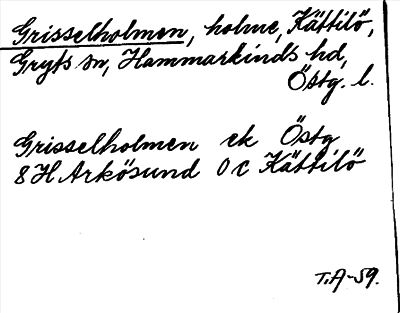 Grisselholmen, holme, Kättilö,
Gryts sn, Hammarkinds hd,
Östg. l.
Grisselholmen ek Östg
8H Arkösund 0c Kättilö
T.A-59.